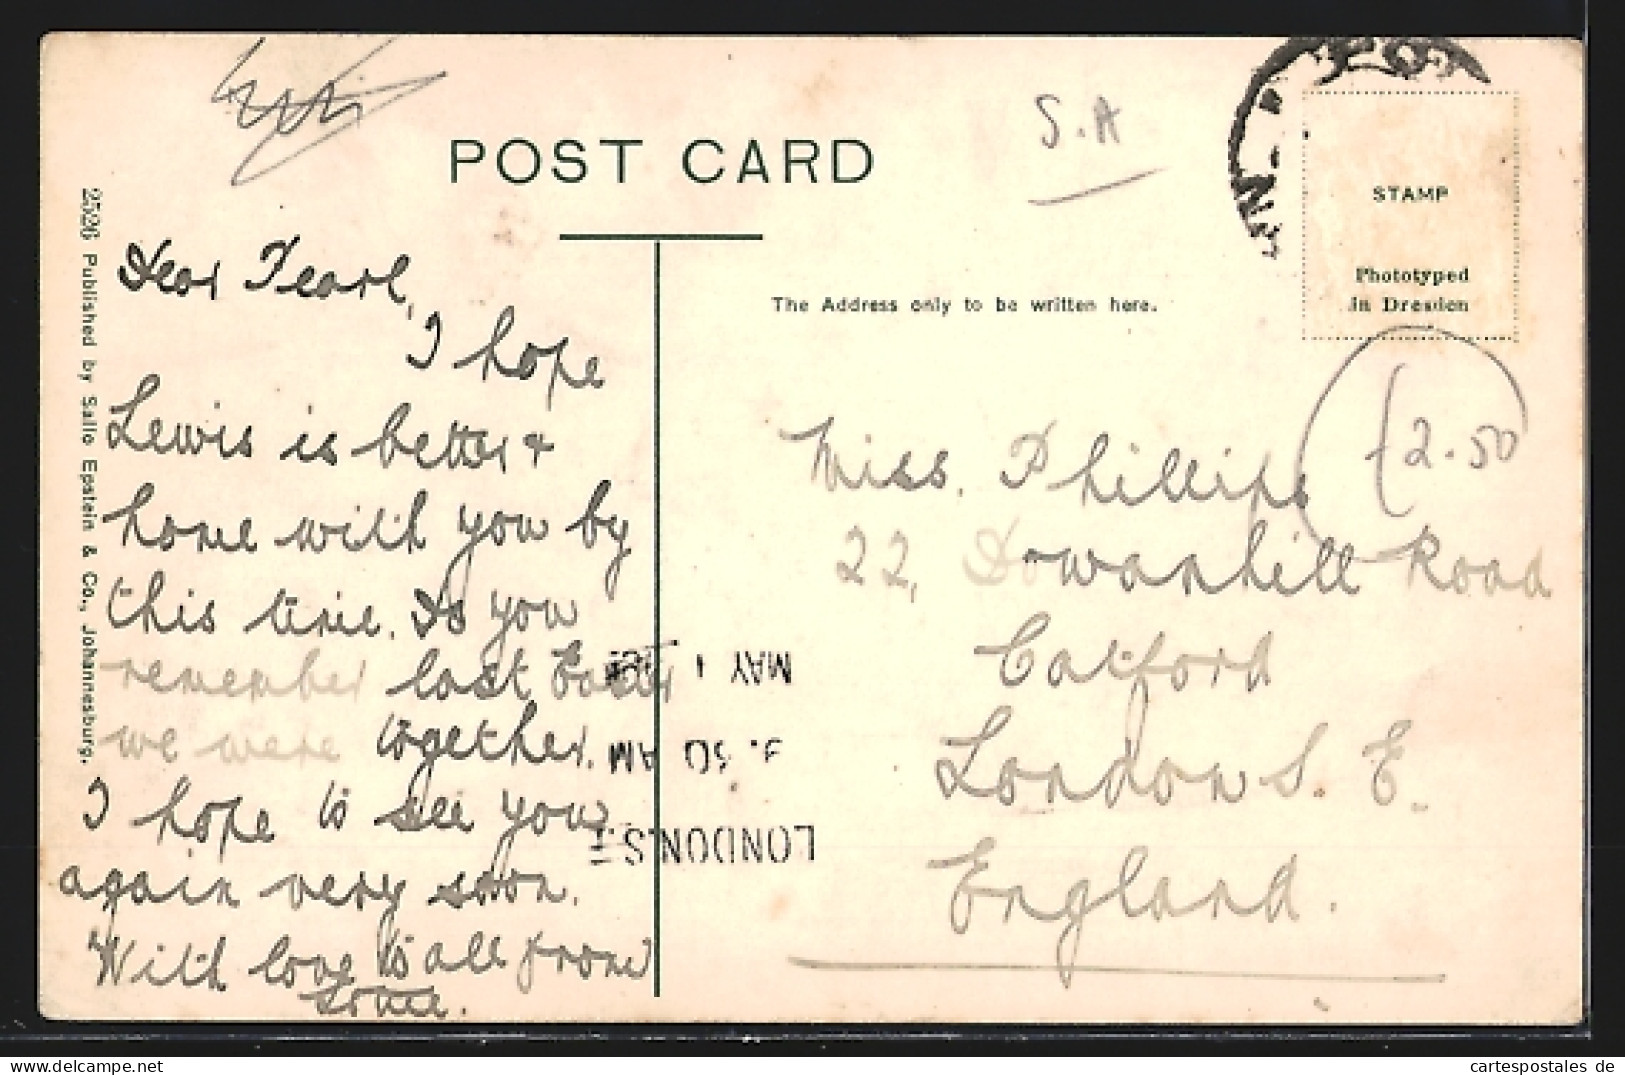 S.A
POST CARD
STAMP
Phototyped
in Dresden
The Address only to be written here.
2526 Published by Sallo Epstein & Co., Johannesburg.
Dear Pearl,
I hope
Lewis is better &
home with you by
this time. Do you
remember last Easter
we were together.
I hope to see you
again very soon.
With love to all from
MAY 1
9.30 AM
LONDON.S.E
12.50
Miss. Phillips
22, Downhill Road
Catford
London S. E.
England.
cartespostales de